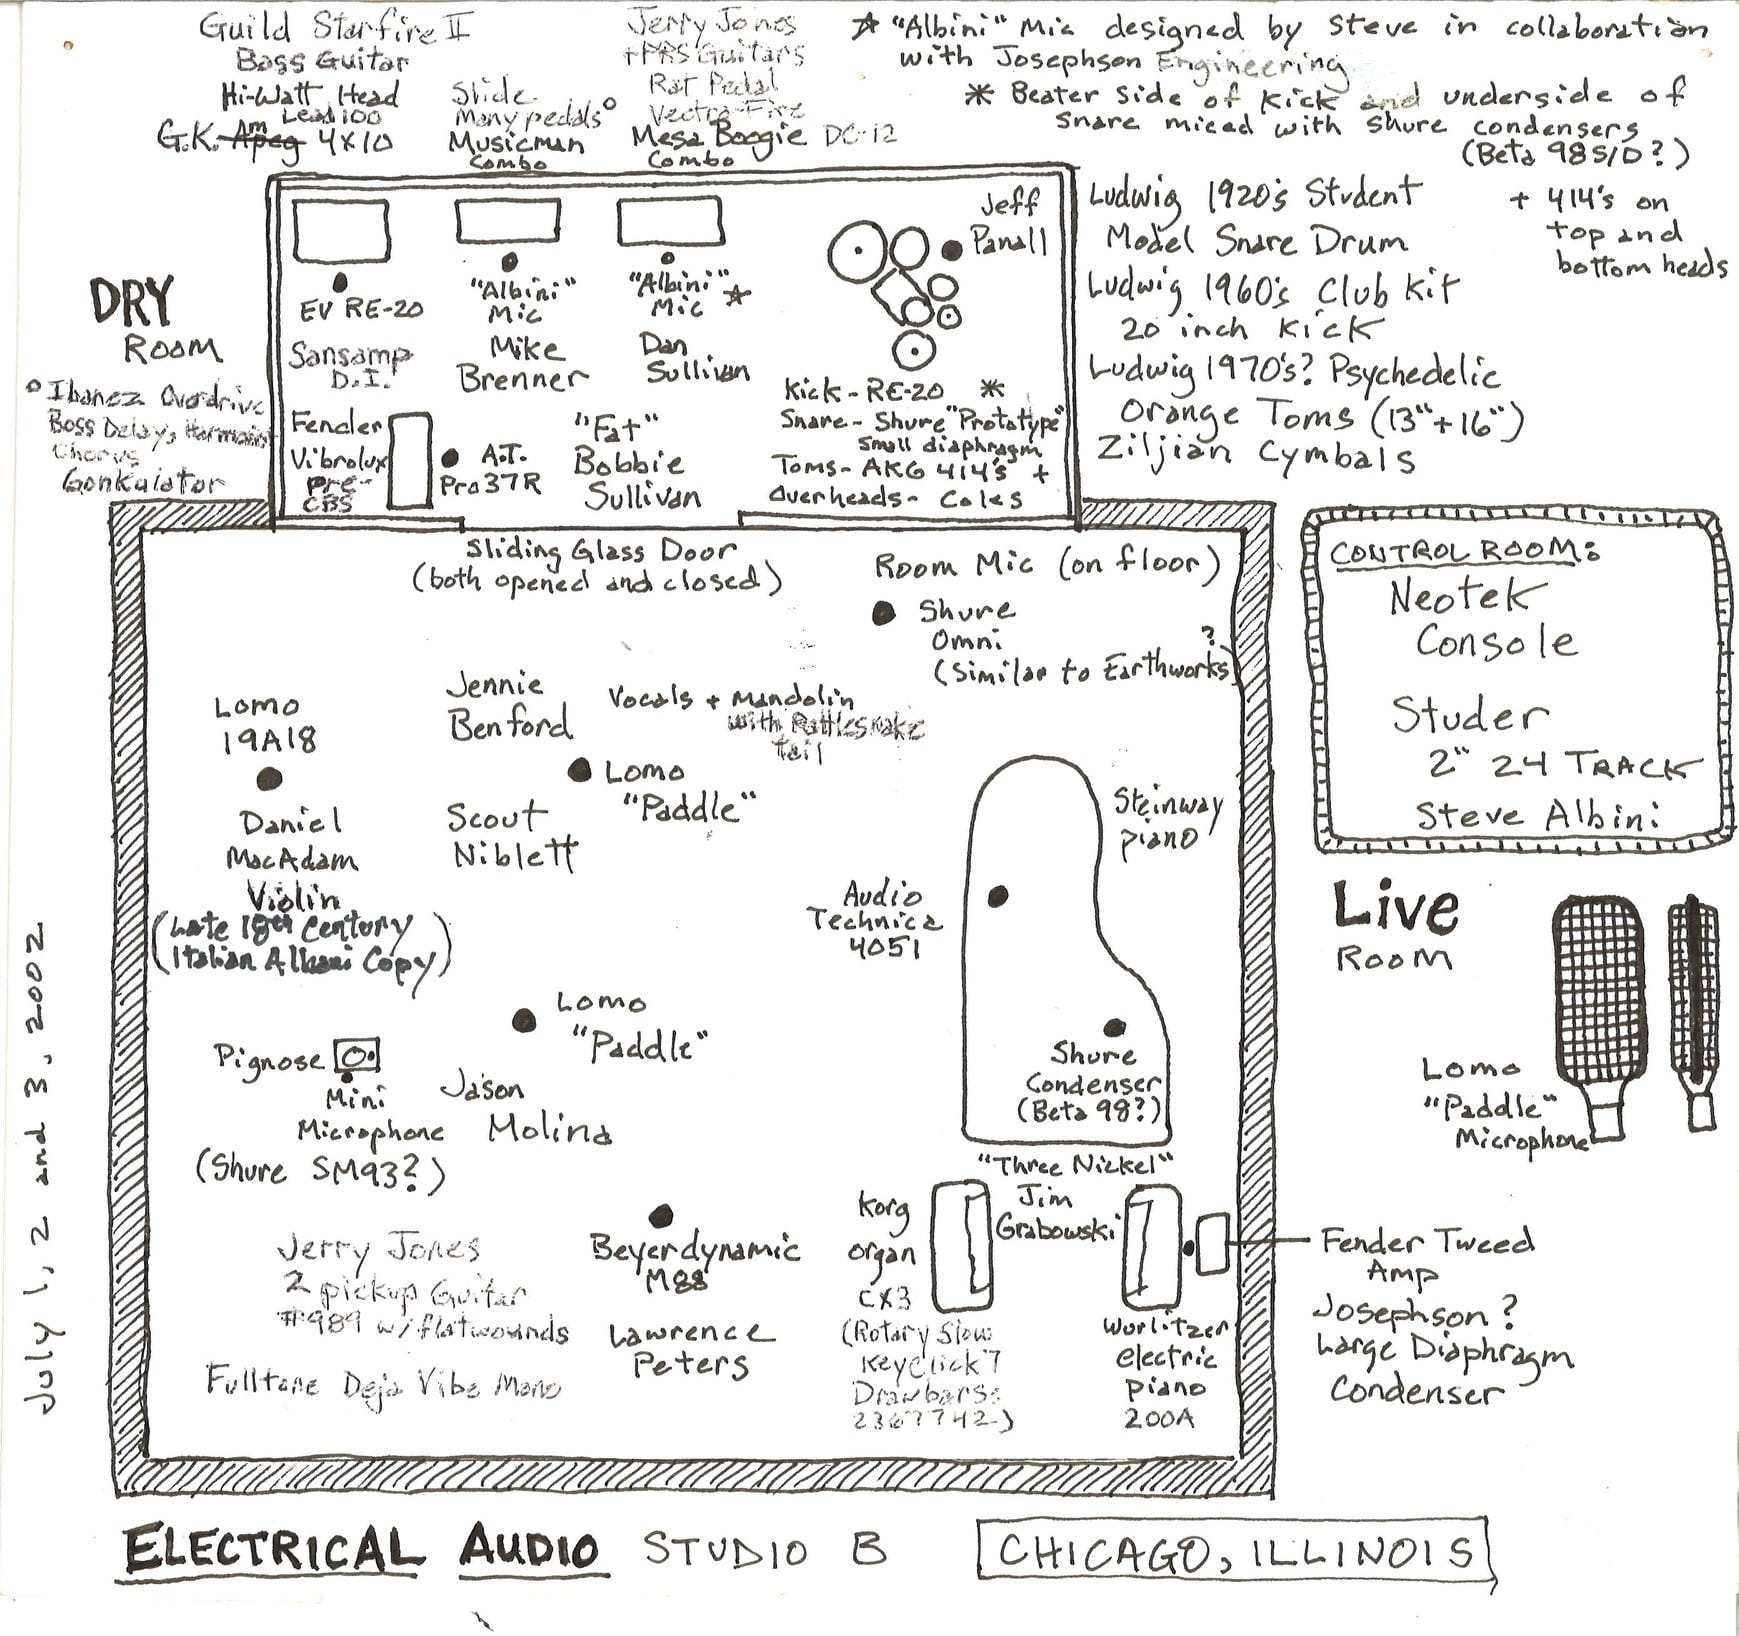 Guild Starfire II
Bass Guitar
Hi-Watt Head
Lead 100
G.K. Ampeg 4x10
Slide
Many pedals°
Musicman
Combo
Jerry Jones
+ PRS Guitars
Rat Pedal
Vectra-Fire
Mesa Boogie DC-12
Combo
☆ "Albini" Mic designed by Steve in collaboration
with Josephson Engineering
* Beater side of kick and underside of
snare miced with Shure condensers
(Beta 98S/D?)
+ 414's on
top and
bottom heads
DRY
ROOM
° Ibanez Overdrive
Boss Delay, Harmonist
Chorus
Gonkulator
EV RE-20
Sansamp
D.I.
"Albini"
Mic
Mike
Brenner
"Albini" ☆
Mic
Dan
Sullivan
Jeff
Panall
Kick - RE-20 *
Snare - Shure "Prototype"
Small diaphragm
Toms - AKG 414's +
Overheads - Coles
Fender
Vibrolux
pre-
CBS
A.T.
Pro37R
"Fat"
Bobbie
Sullivan
Ludwig 1920's Student
Model Snare Drum
Ludwig 1960's Club kit
20 inch kick
Ludwig 1970's? Psychedelic
Orange Toms (13"+16")
Ziljian Cymbals
Sliding Glass Door
(both opened and closed)
Room Mic (on floor)
Shure
Omni
?
(Similar to Earthworks)
CONTROL ROOM:
Neotek
Console
Studer
2" 24 TRACK
Steve Albini
Lomo
19A18
Daniel
MacAdam
Violin
(Late 18th Century
Italian Albani Copy)
Jennie
Benford
Vocals + Mandolin
with Rattlesnake
tail
Lomo
"Paddle"
Scout
Niblett
Steinway
piano
Audio
Technica
4051
Shure
Condenser
(Beta 98?)
Live
ROOM
Lomo
"Paddle"
Microphone
Lomo
"Paddle"
Pignose
Mini
Microphone
(Shure SM93?)
Jason
Molina
"Three Nickel"
Jim
Grabowski
Korg
organ
CX3
(Rotary Slow
Keyclick 7
Drawbars:
2367742)
Wurlitzer
electric
piano
200A
Fender Tweed
Amp
Josephson?
Large Diaphragm
Condenser
Beyerdynamic
M88
Lawrence
Peters
Jerry Jones
2 pickup Guitar
#989 w/flatwounds
Fulltone Deja Vibe Mono
July 1, 2 and 3, 2002
ELECTRICAL AUDIO STUDIO B
CHICAGO, ILLINOIS